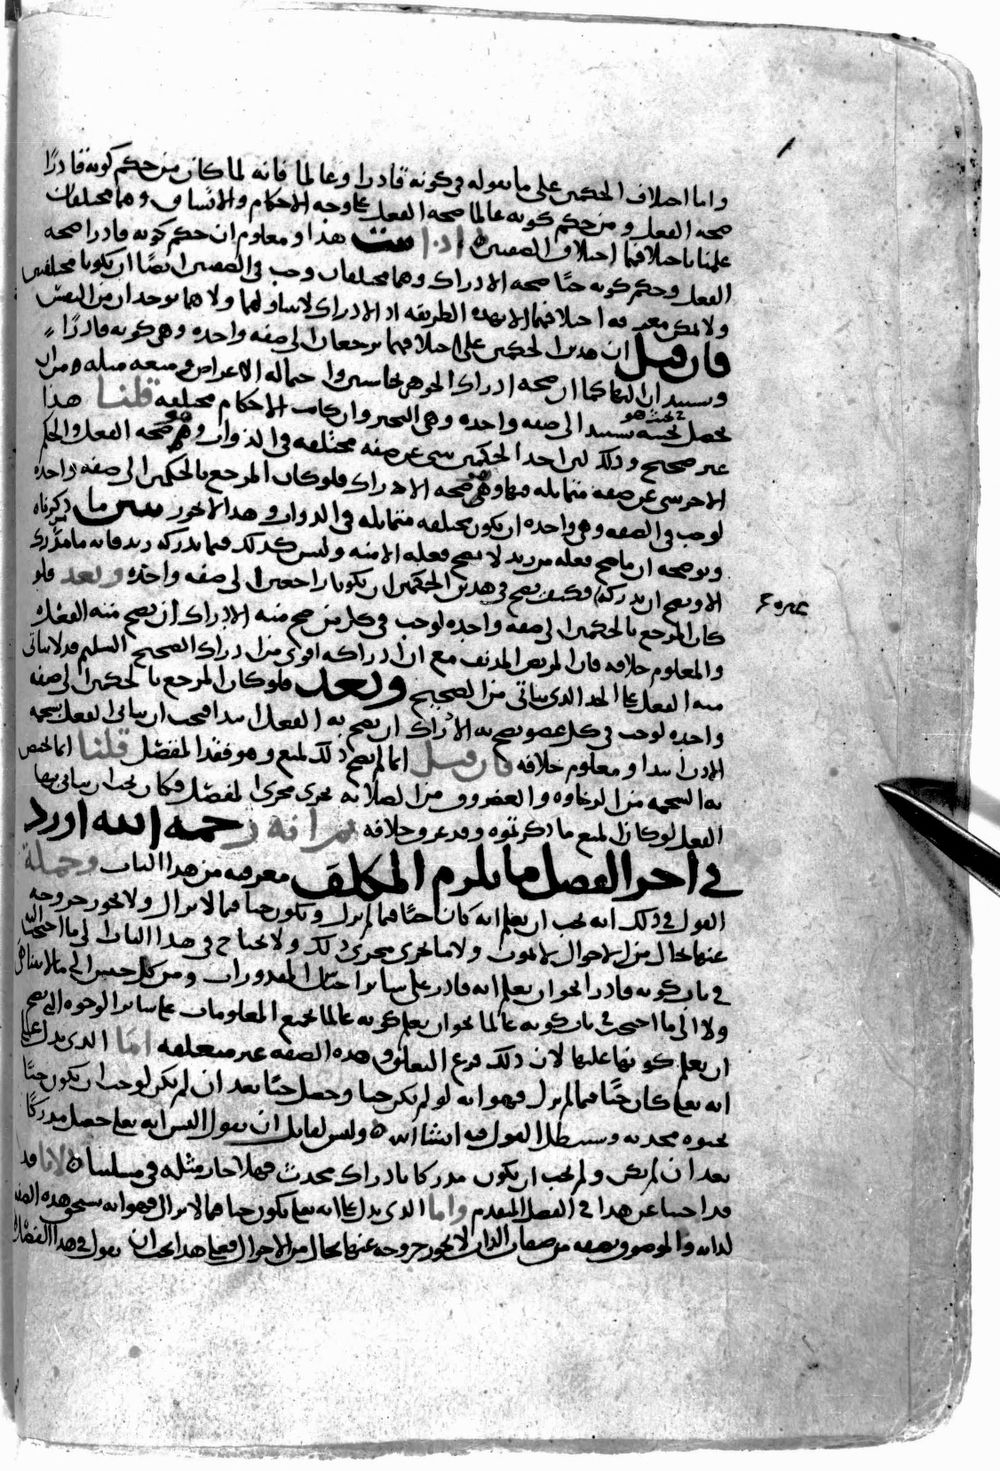 واما اختلاف الحكمين على ما نقوله في كونه قادرا وعالما فانه لما كان من حكم كونه قادرًا
صحه الفعل ومن حكم كونه عالما صحه الفعل على وجه الاحكام والاتساق وهما مختلفان
علمنا باختلافهما اختلاف الصفتين اذا ثبت هذا ومعلوم ان حكم كونه قادرا صحه
الفعل وحكم كونه حيًا صحه الادراك وهما مختلفان وجب في الصفتين ايضًا ان يكونا مختلفتين
ولا يمكن معرفه اختلافهما الا بهذه الطريقه اذ الادراك لا يتناولهما ولا هما يوجدان من النفس
فان قيل ان هذين الحكمين على اختلافهما يرجعان الى صفه واحده وهي كونه قادرًا
ويستندان اليها كما ان صحه ادراك الجوهر بحاستين واحتماله الاعراض ومنعه مثله من ان
يحصل بحيث هو يستند الى صفه واحده وهي التحيز وان كانت الاحكام مختلفه قلنا هذا
غير صحيح وذلك لان احد الحكمين ينبي عن صفه مختلفه في الذوات وهو صحه الفعل والحكم
الاخر ينبي عن صفه متماثله فيها وهو صحه الادراك فلو كان المرجع بالحكمين الى صفه واحده
لوجب في الصفه وهي واحده ان يكون مختلفه متماثله في الذوات وهذا لا يجوز يبين ما ذكرناه
ويوضحه ان ما صح فعله من زيد لا يصح فعله الا منه وليس كذلك فيما يدركه زيد فانه ما من مدرك
الا ويصح ان يدركه غيره فكيف يصح في هذين الحكمين ان يكونا راجعين الى صفه واحده وبعد فلو
كان المرجع بالحكمين الى صفه واحده لوجب في كل من صح منه الادراك ان يصح منه الفعل
والمعلوم خلافه فان المريض المدنف مع ان ادراكه اقوى من ادراك الصحيح السليم قد لا يتاتى
منه الفعل على الحد الذي يتاتى من الصحيح وبعد فلو كان المرجع بالحكمين الى صفه
واحده لوجب في كل عضو يصح به الادراك ان يصح به الفعل ابتدا فيجب ان يتاتى الفعل بشحمه
الاذن ابتدا ومعلوم خلافه فان قيل انما لم يصح ذلك لمنع وهو فقد المفصل قلنا انما يختص
به الشحمه من الرخاوه والغضروف من الصلابه يجري مجرى المفصل فكان يجب ان يتاتى بها
الفعل لو كان المنع ما ذكرتموه وقد عرف خلافه ثم انه رحمه الله اورد
في اخر الفصل ما يلزم المكلف معرفته من هذا الباب وجملة
القول في ذلك انه يجب ان يعلم انه كان حيًا فيما لم يزل ويكون حيا فيما لا يزال ولا يجوز خروجه
عنها بحال من الاحوال بالموت ولا ما يجري مجرى ذلك ولا يحتاج في هذا الباب الى ما احتجنا اليه
في باب كونه قادرا نحو ان يعلم انه قادر على سائر اجناس المقدورات ومن كل جنس الى ما لا يتناهى
ولا الى ما احتجت في باب كونه عالما نحو ان يعلم كونه عالما بجميع المعلومات على سائر الوجوه التي يصح
ان يعلم كونها عليها لان ذلك فرع التعلق وهذه الصفه غير متعلقه اما الذي يدل على
انه تعالى كان حيًا فيما لم يزل فهو انه لو لم يكن حيا وحصل حيًا بعد ان لم يكن لوجب ان يكون حيًا
بحيوه محدثه وسيبطل القول فيه ان شا الله وليس لقايل ان يقول اليس انه تعالى حصل مدركًا
بعد ان لم يكن ولم يجب ان يكون مدركا بادراك محدث فهلا جاز مثله في مسلتنا لانا قد
قد اجبنا عن هذا في الفصل المتقدم واما الذي يدل على انه تعالى يكون حيا فيما لا يزال فهو انه يستحق هذه الصفه
لذاته والموصوف بصفه من صفات الذات لا يجوز خروجه عنها بحال من الاحوال فعلى هذا يجب ان يقول في هذا الفصل